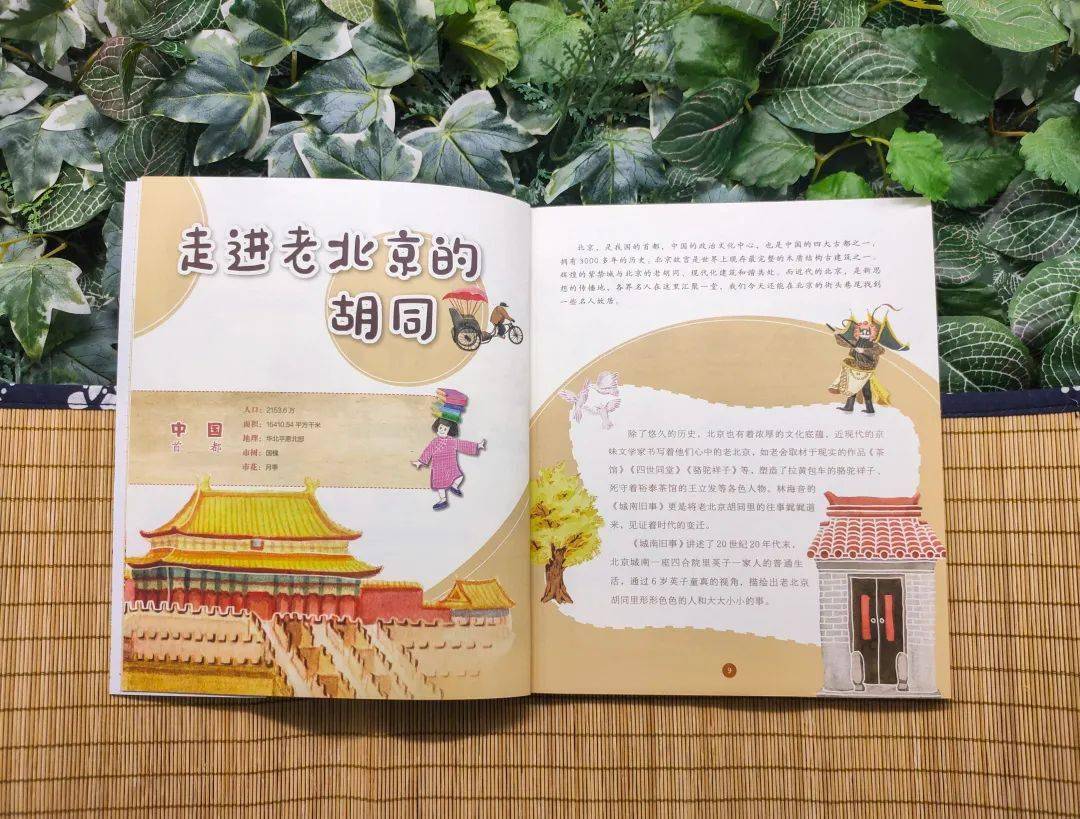 走进老北京的
胡同
中国
首都
人口：2153.6万
面积：16410.54平方千米
地理：华北平原北部
市树：国槐
市花：月季
北京，是我国的首都，中国的政治文化中心，也是中国的四大古都之一，
拥有3000多年的历史。北京故宫是世界上现存最完整的木质结构古建筑之一。
辉煌的紫禁城与北京的老胡同、现代化建筑和谐共处。而近代的北京，是新思
想的传播地，各界名人在这里汇聚一堂，我们今天还能在北京的街头巷尾找到
一些名人故居。
除了悠久的历史，北京也有着浓厚的文化底蕴，近现代的京
味文学家书写着他们心中的老北京，如老舍取材于现实的作品《茶
馆》《四世同堂》《骆驼祥子》等，塑造了拉黄包车的骆驼祥子、
死守着裕泰茶馆的王立发等各色人物。林海音的
《城南旧事》更是将老北京胡同里的往事娓娓道
来，见证着时代的变迁。
《城南旧事》讲述了20世纪20年代末，
北京城南一座四合院里英子一家人的普通生
活，通过6岁英子童真的视角，描绘出老北京
胡同里形形色色的人和大大小小的事。
9